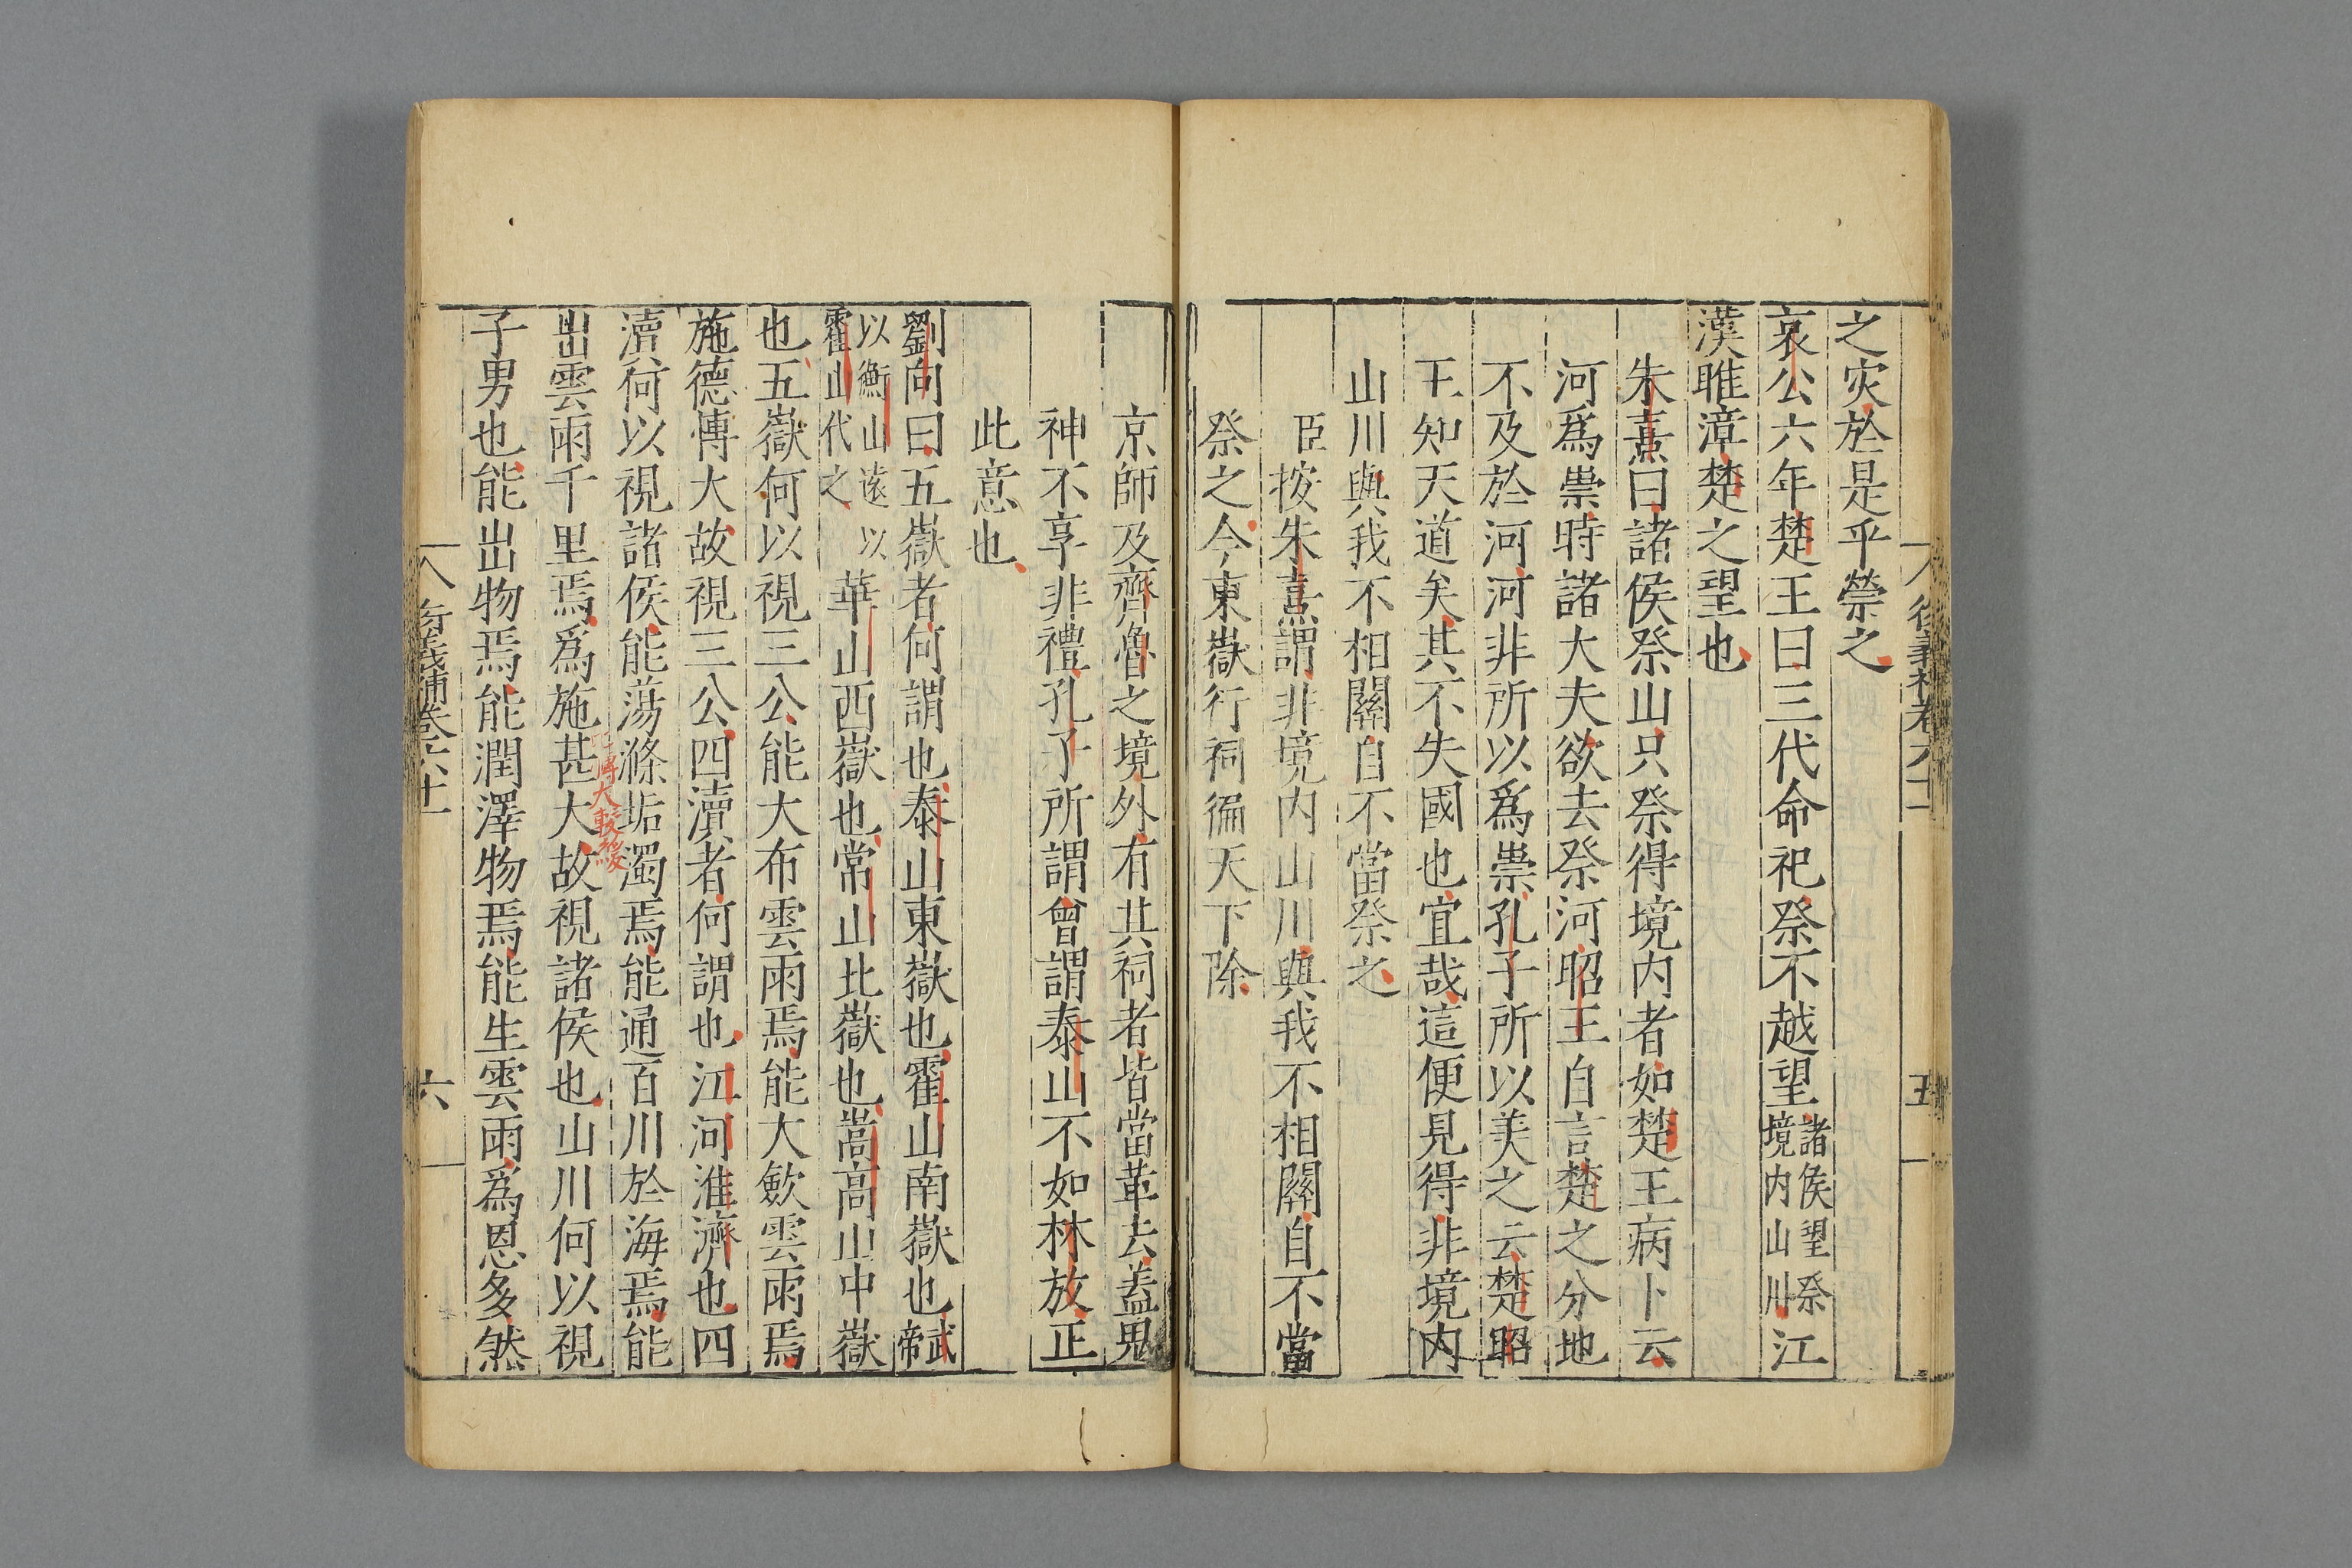 之灾於是乎禜之
哀公六年楚王曰三代命祀祭不越望諸侯望祭境内山川江
漢睢漳楚之望也
朱熹曰諸侯祭山只祭得境内者如楚王病卜云
河爲祟時諸大夫欲去祭河昭王自言楚之分地
不及於河河非所以爲祟孔子所以美之云楚昭
王知天道矣其不失國也宜哉這便見得非境内
山川與我不相關自不當祭之
臣按朱熹謂非境内山川與我不相關自不當
祭之今東嶽行祠徧天下除
京師及齊魯之境外有其祠者皆當革去蓋鬼
神不享非禮孔子所謂曾謂泰山不如林放正
此意也
劉向曰五嶽者何謂也泰山東嶽也霍山南嶽也武帝
以衡山遠以霍山代之華山西嶽也常山北嶽也嵩高山中嶽
也五嶽何以視三公能大布雲雨焉能大歛雲雨焉
施德博大故視三公四瀆者何謂也江河淮濟也四
瀆何以視諸侯能蕩滌垢濁焉能通百川於海焉能
出雲雨千里焉爲施甚大故視諸侯也山川何以視
子男也能出物焉能潤澤物焉能生雲雨爲恩多然
五
六